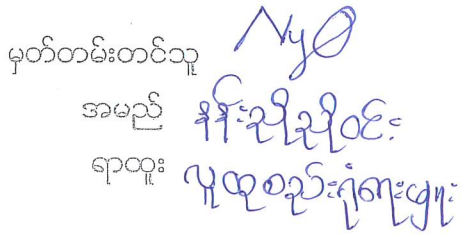 မှတ်တမ်းတင်သူ NyO
အမည် နန်းညိုညိုဝင်း
ရာထူး လူထုစည်းရုံးရေးမှူး